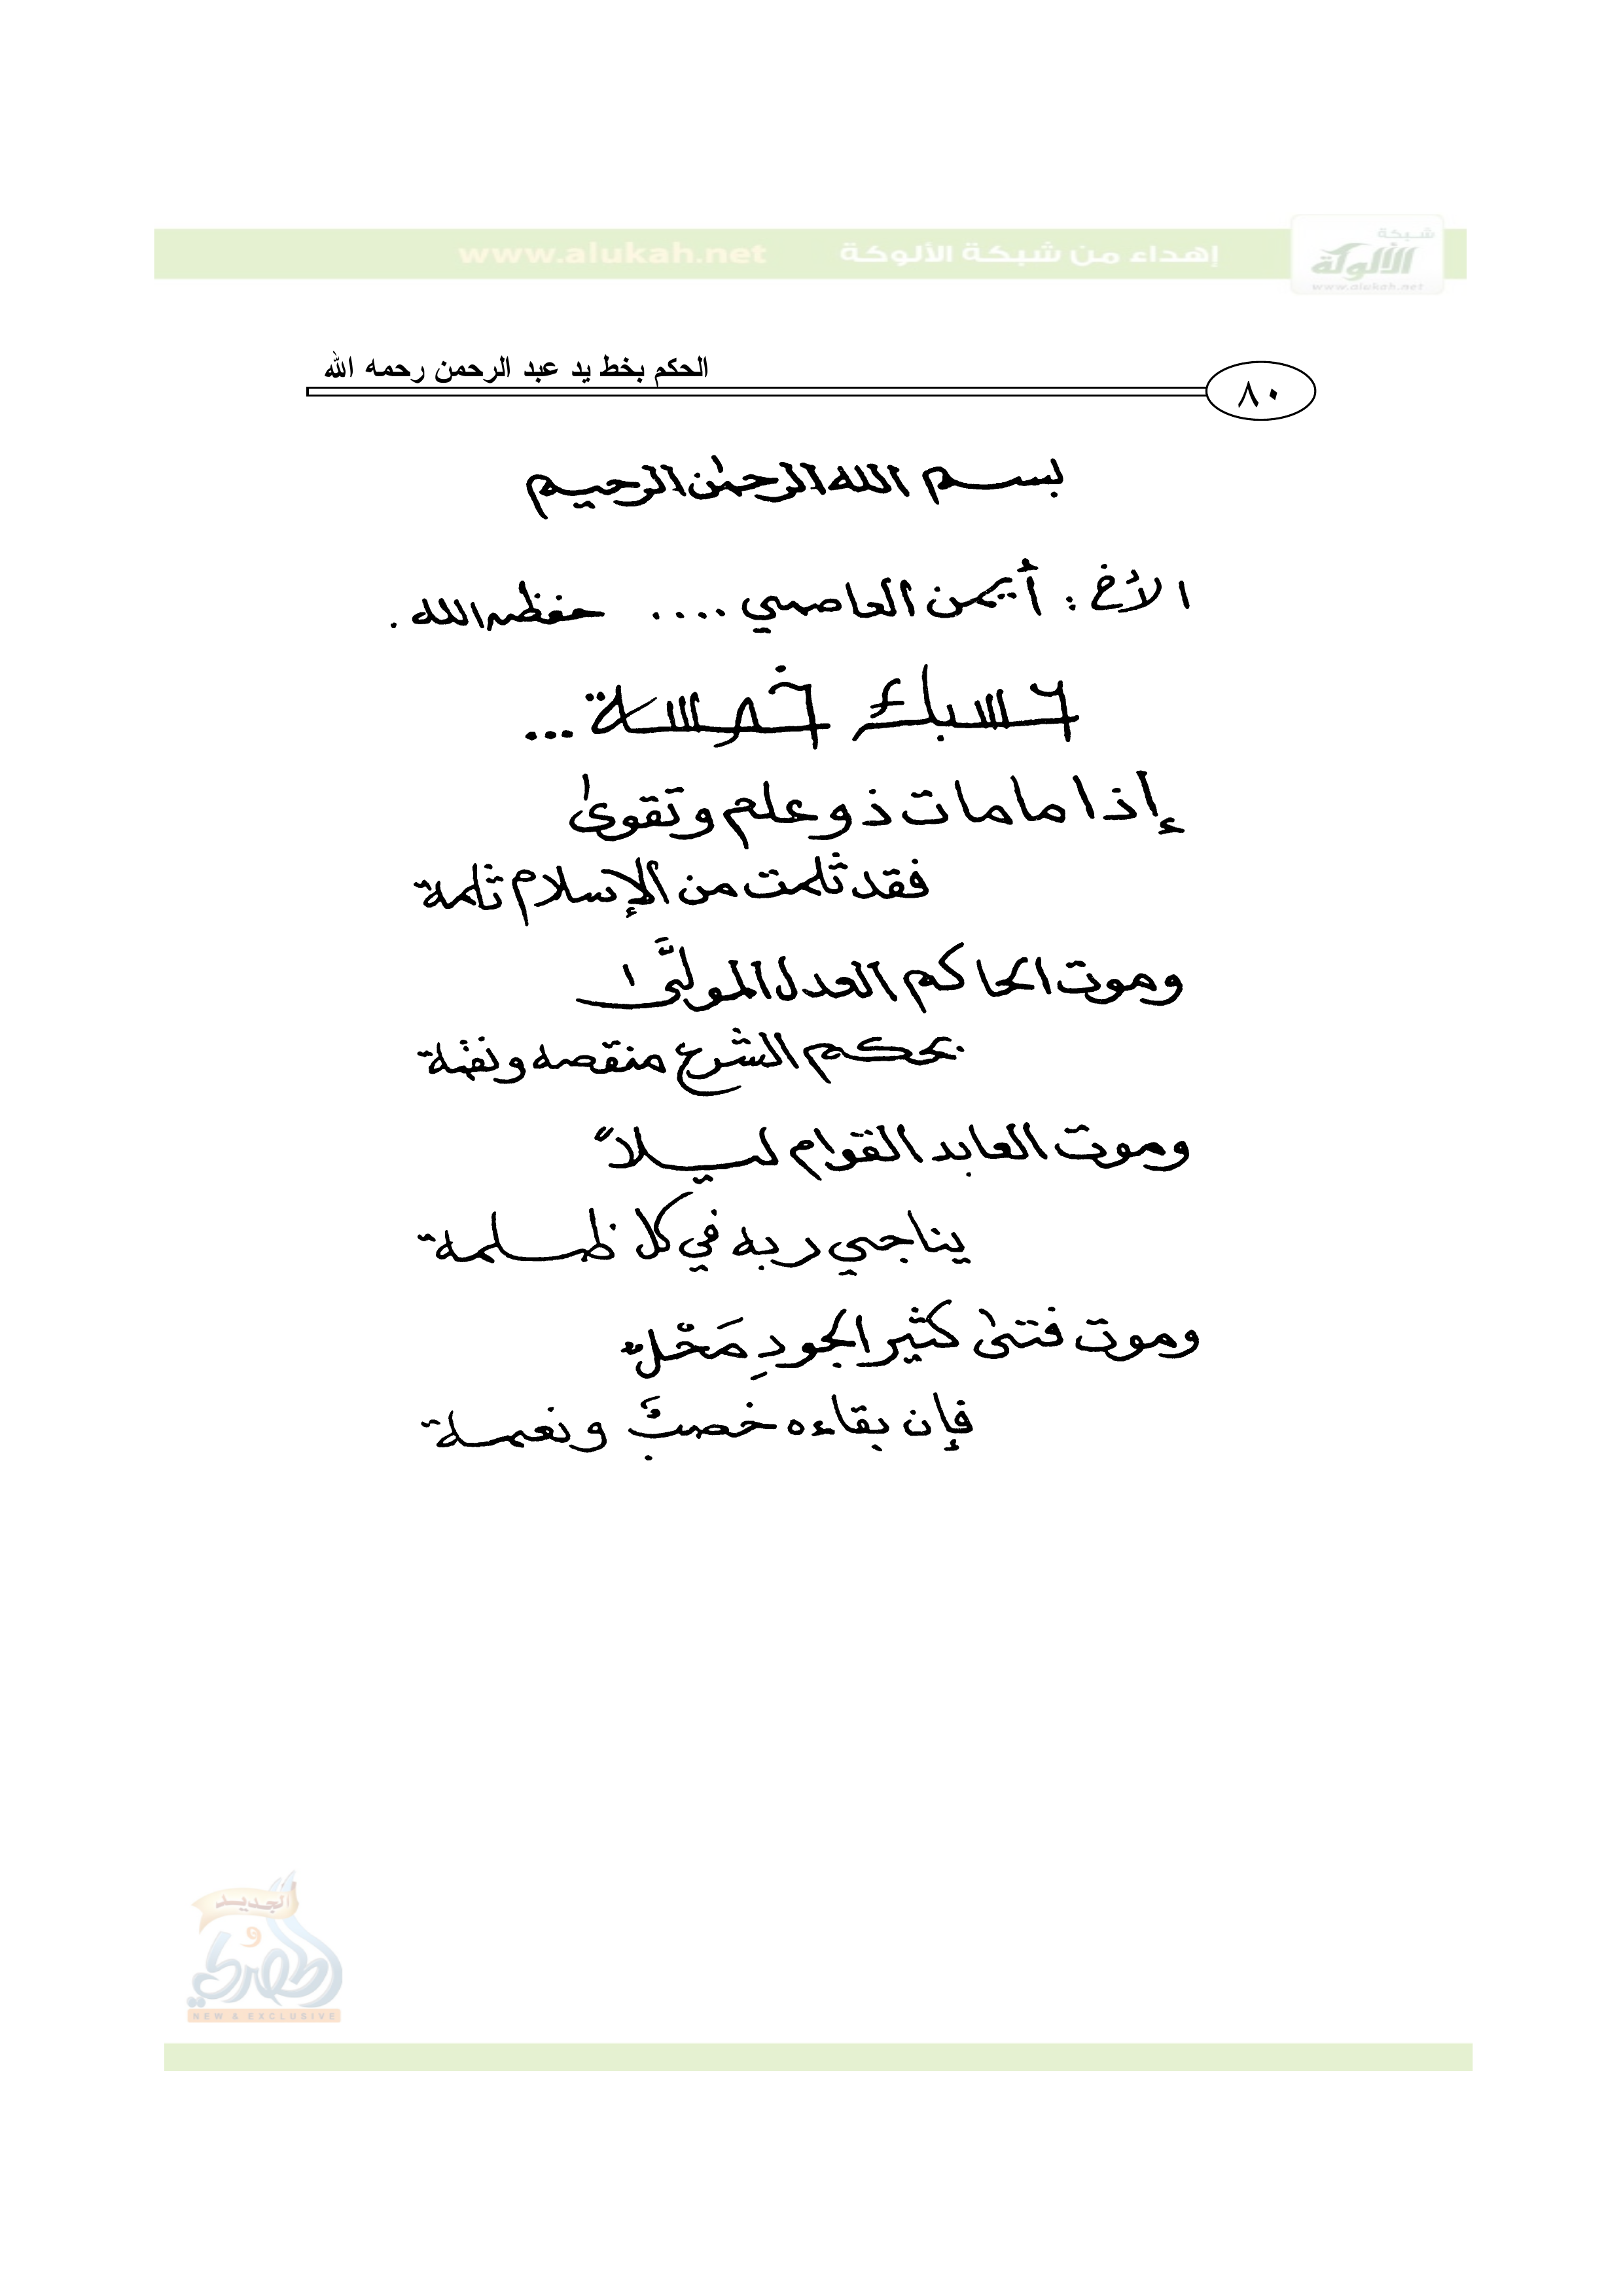 إهداء من شبكة الألوكة www.alukah.net
شبكة
الألوكة
www.alukah.net
الحكم بخط يد عبد الرحمن رحمه الله
٨٠
بسم الله الرحمٰن الرحيم
الأخ : أيمن العاصمي .... حفظه الله .
حسبك خمسة ...
إذا ما مات ذو علم وتقوىٰ
فقد ثلمت من الإسلام ثلمة
وموت الحاكم العدل المولَّىٰ
بحكم الشرع منقصه ونقمة
وموت العابد القوام ليلاً
يناجي ربه في كل ظلمة
وموت فتىٰ كثير الجودِ مَحْلٌ
فإن بقاءه خصبٌ ونعمة
الجديد
و
الحصري
NEW & EXCLUSIVE